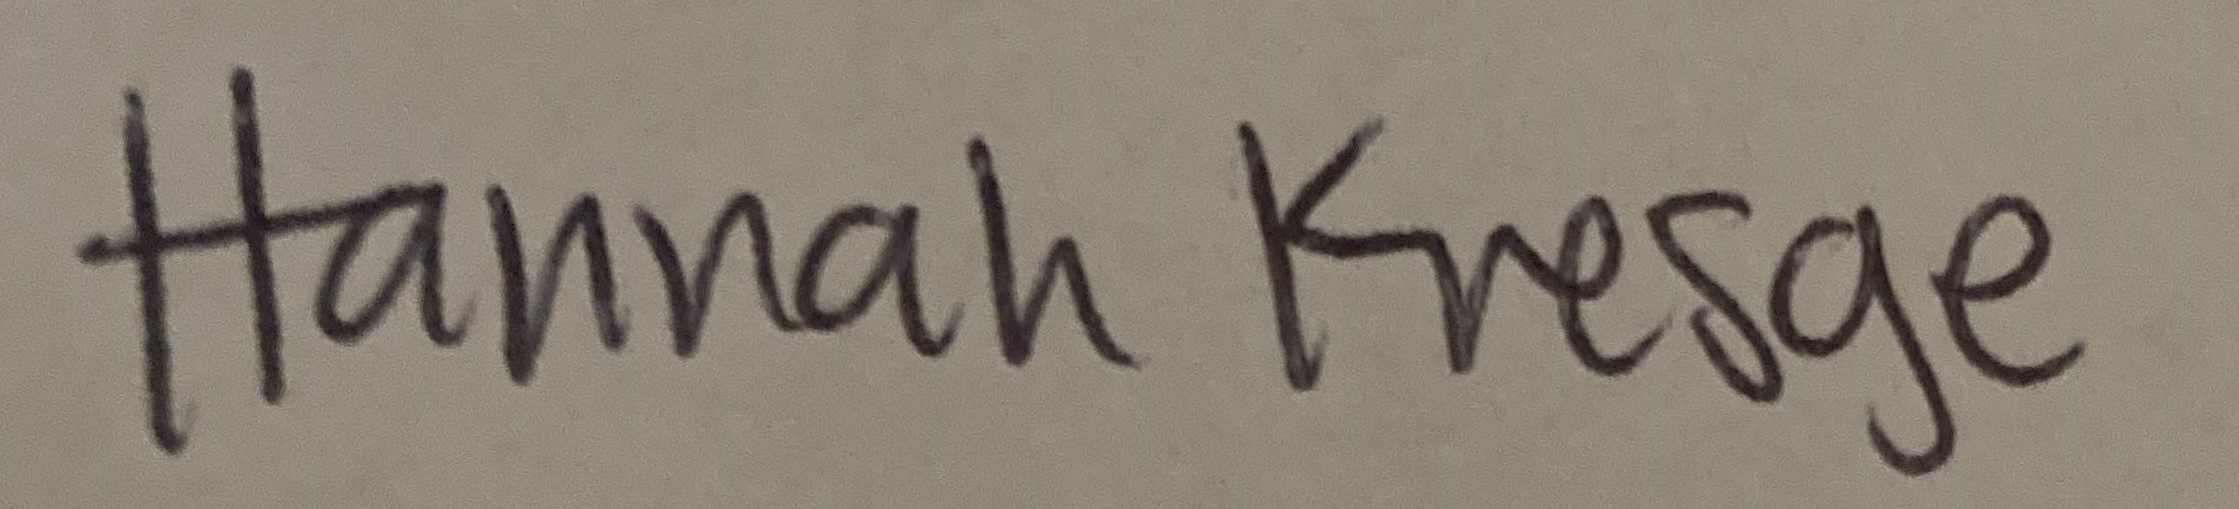 Hannah Kresge